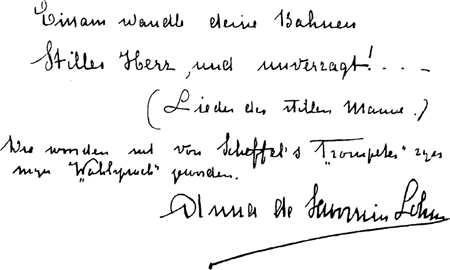 Einsam wandle deine Bahnen
Stilles Herz, und unverzagt! . . . -
(Lieder des stillen Mannes.)
Die woorden uit von Scheffel's "Trompeter" zijn
mijn "Wahlspruch" geworden.
Anna de Savornin Lohman